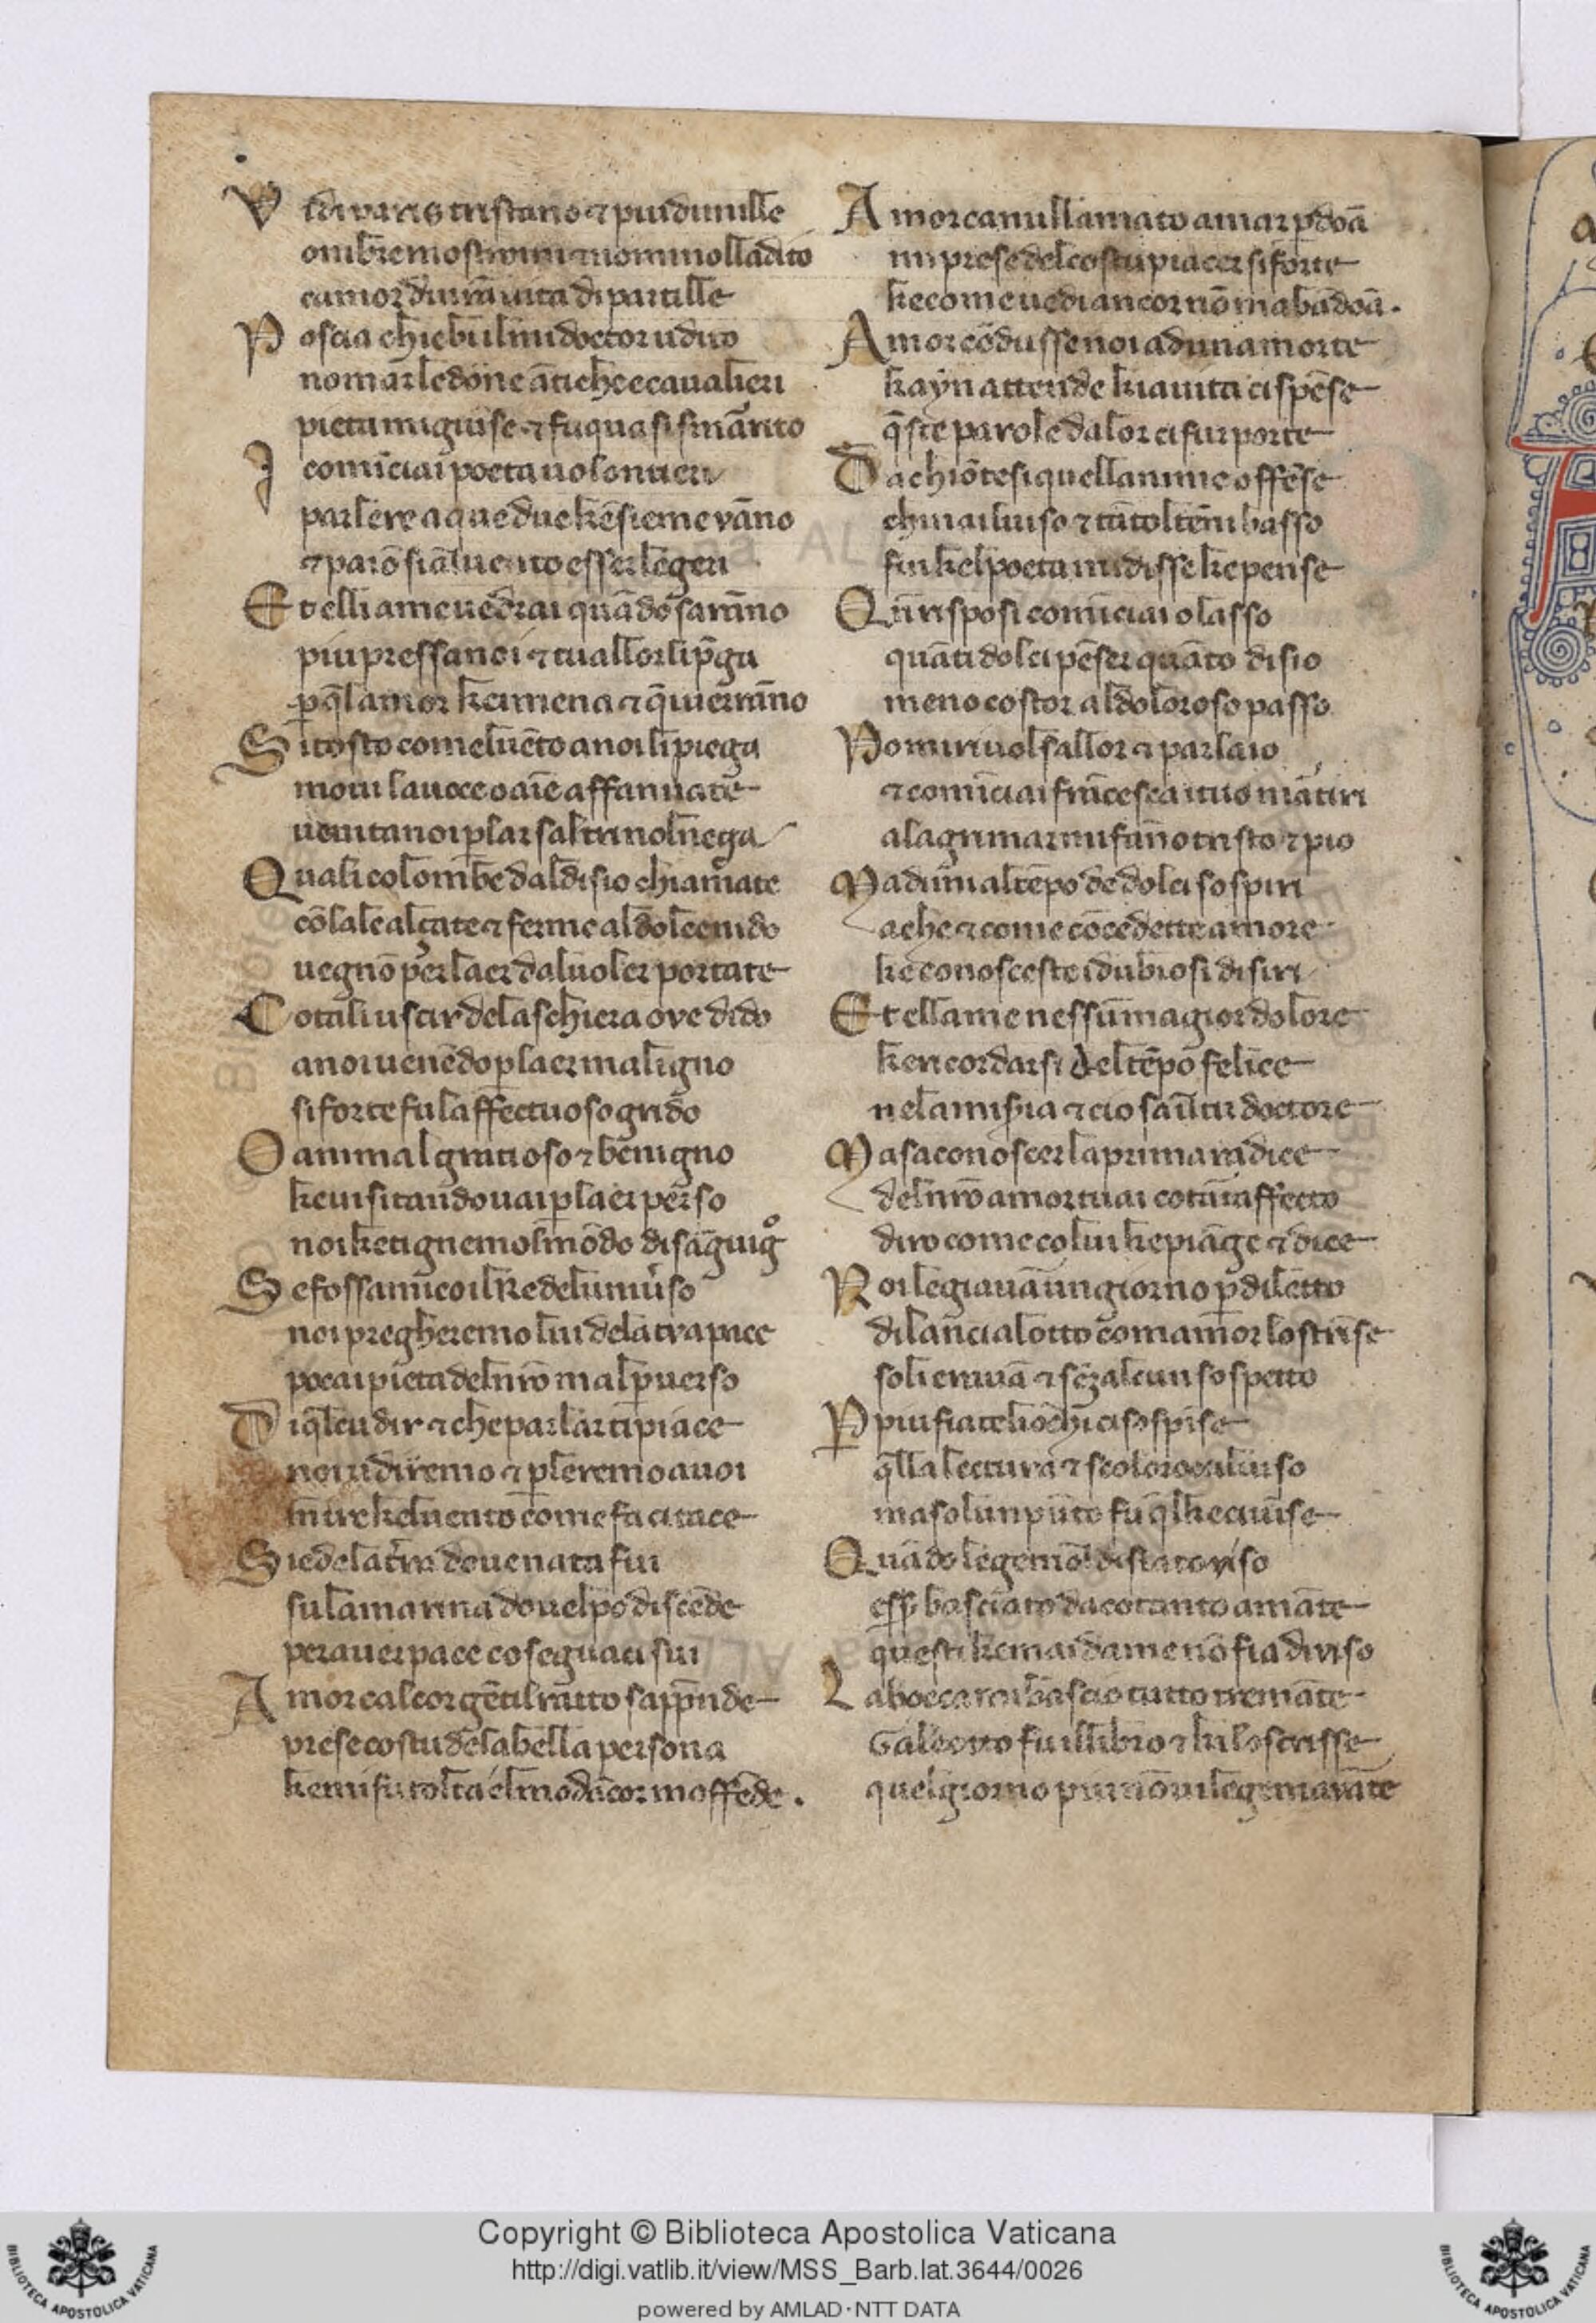 V idi paris tristano ⁊ piu dimille
ombre mostrōmi ⁊ nominolladito
camor dnr̄a uita dipartille
P oscia chiebbi lmidoctor udito
nomar ledōne ātiche ecaualieri
pieta migiūse ⁊ fu quasi smarito
I comīciai poeta uolontieri
parlere a que due kēsieme vāno
⁊ paiō si al uento esser legeri
E t elli ame uedrai quādo sarāno
piu presso anoi ⁊ tu allor li p̄ga
p̄ q̄lamor kei mena ⁊ q̄i uerrāno
S i tosto come luēto anoi li piega
moui lauoce o aīe affannate
uenite anoi plar saltri nol niega
Q uali colombe dal disio chiamate
cō lale alçate ⁊ ferme al dolce nido
uegnō per laer dal uoler portate
C otali uscir dela schiera ove dido
anoi uenēdo p laer maligno
si forte fu laffectuoso grido
O animal gratioso ⁊ benigno
ke uisitando uai p laer perso
noi ke tignemo lmōdo di sāguigo
S e fosse amico il Re delunīuso
noi pregheremo lui dela tva pace
po cai pieta del nr̄o mal puerso
D i q̄l cudir ⁊ che parlar ti piace
noi udiremo ⁊ pleremo auoi
mītre kel uento come fa ci tace
S iede la tr̄ra doue nata fui
su la marina doue lpo discēde
per auer pace co seguaci sui
A mor cal cor gētil ratto sapp̄nde
prese costu dela bella persona
ke mi fu tolta el modācor moffēde .
A mor canullamato amar p̄doā
mi prese del costu piacer si forte
ke come uedi ancor nō mabādoā .
A mor cōdusse noi ad una morte
kayn attende ki auita ci spēse
q̄ste parole da lor ci fur porte
D a chiōtesi quellanime offēse
chinai luiso ⁊ tāto ltēni basso
fin kel poeta mi disse ke pense
Q n̄ risposi comīciai o lasso
quāti dolci pēser quāto disio
meno costor al doloroso passo
P o mi riuolsi allor ⁊ parlaio
⁊ comīciai frācesca i tuo mātiri
a lagrimar mi fāno tristo ⁊ pio
M a dimi al tēpo de dolci sospiri
a che ⁊ come cōcedette amore
ke conosceste i dubiosi disiri
E t ella me nessū magior dolore
ke ricordarsi del tēpo felice
nela misīa ⁊ cio sail tu doctore
M a sa conoscer la prima radice
del nr̄o amor tu ai cotāto affecto
diro come colui ke piāge ⁊ dice
N oi legiauā un giorno p̄ diletto
di lancialotto com amor lo strīse
soli erauā ⁊ sēz alcun sospetto
P piu fiate li ochi ci sospīse
q̄lla lectura ⁊ scolorocci l uiso
ma sol un pūto fu q̄l ke ci uise
Q uādo legemo l disiato riso
essr̄ basciato da cotanto amāte
questi ke mai da me nō fia diviso
L a bocca mi basciò tutto tremāte
Galeotto fu illibro ⁊ ki lo scrisse
quel giorno piu nō ui legemo auāte
Copyright © Biblioteca Apostolica Vaticana
http://digi.vatlib.it/view/MSS_Barb.lat.3644/0026
powered by AMLAD·NTT DATA
BIBLIOTECA APOSTOLICA VATICANA
BIBLIOTECA APOSTOLICA VATICANA